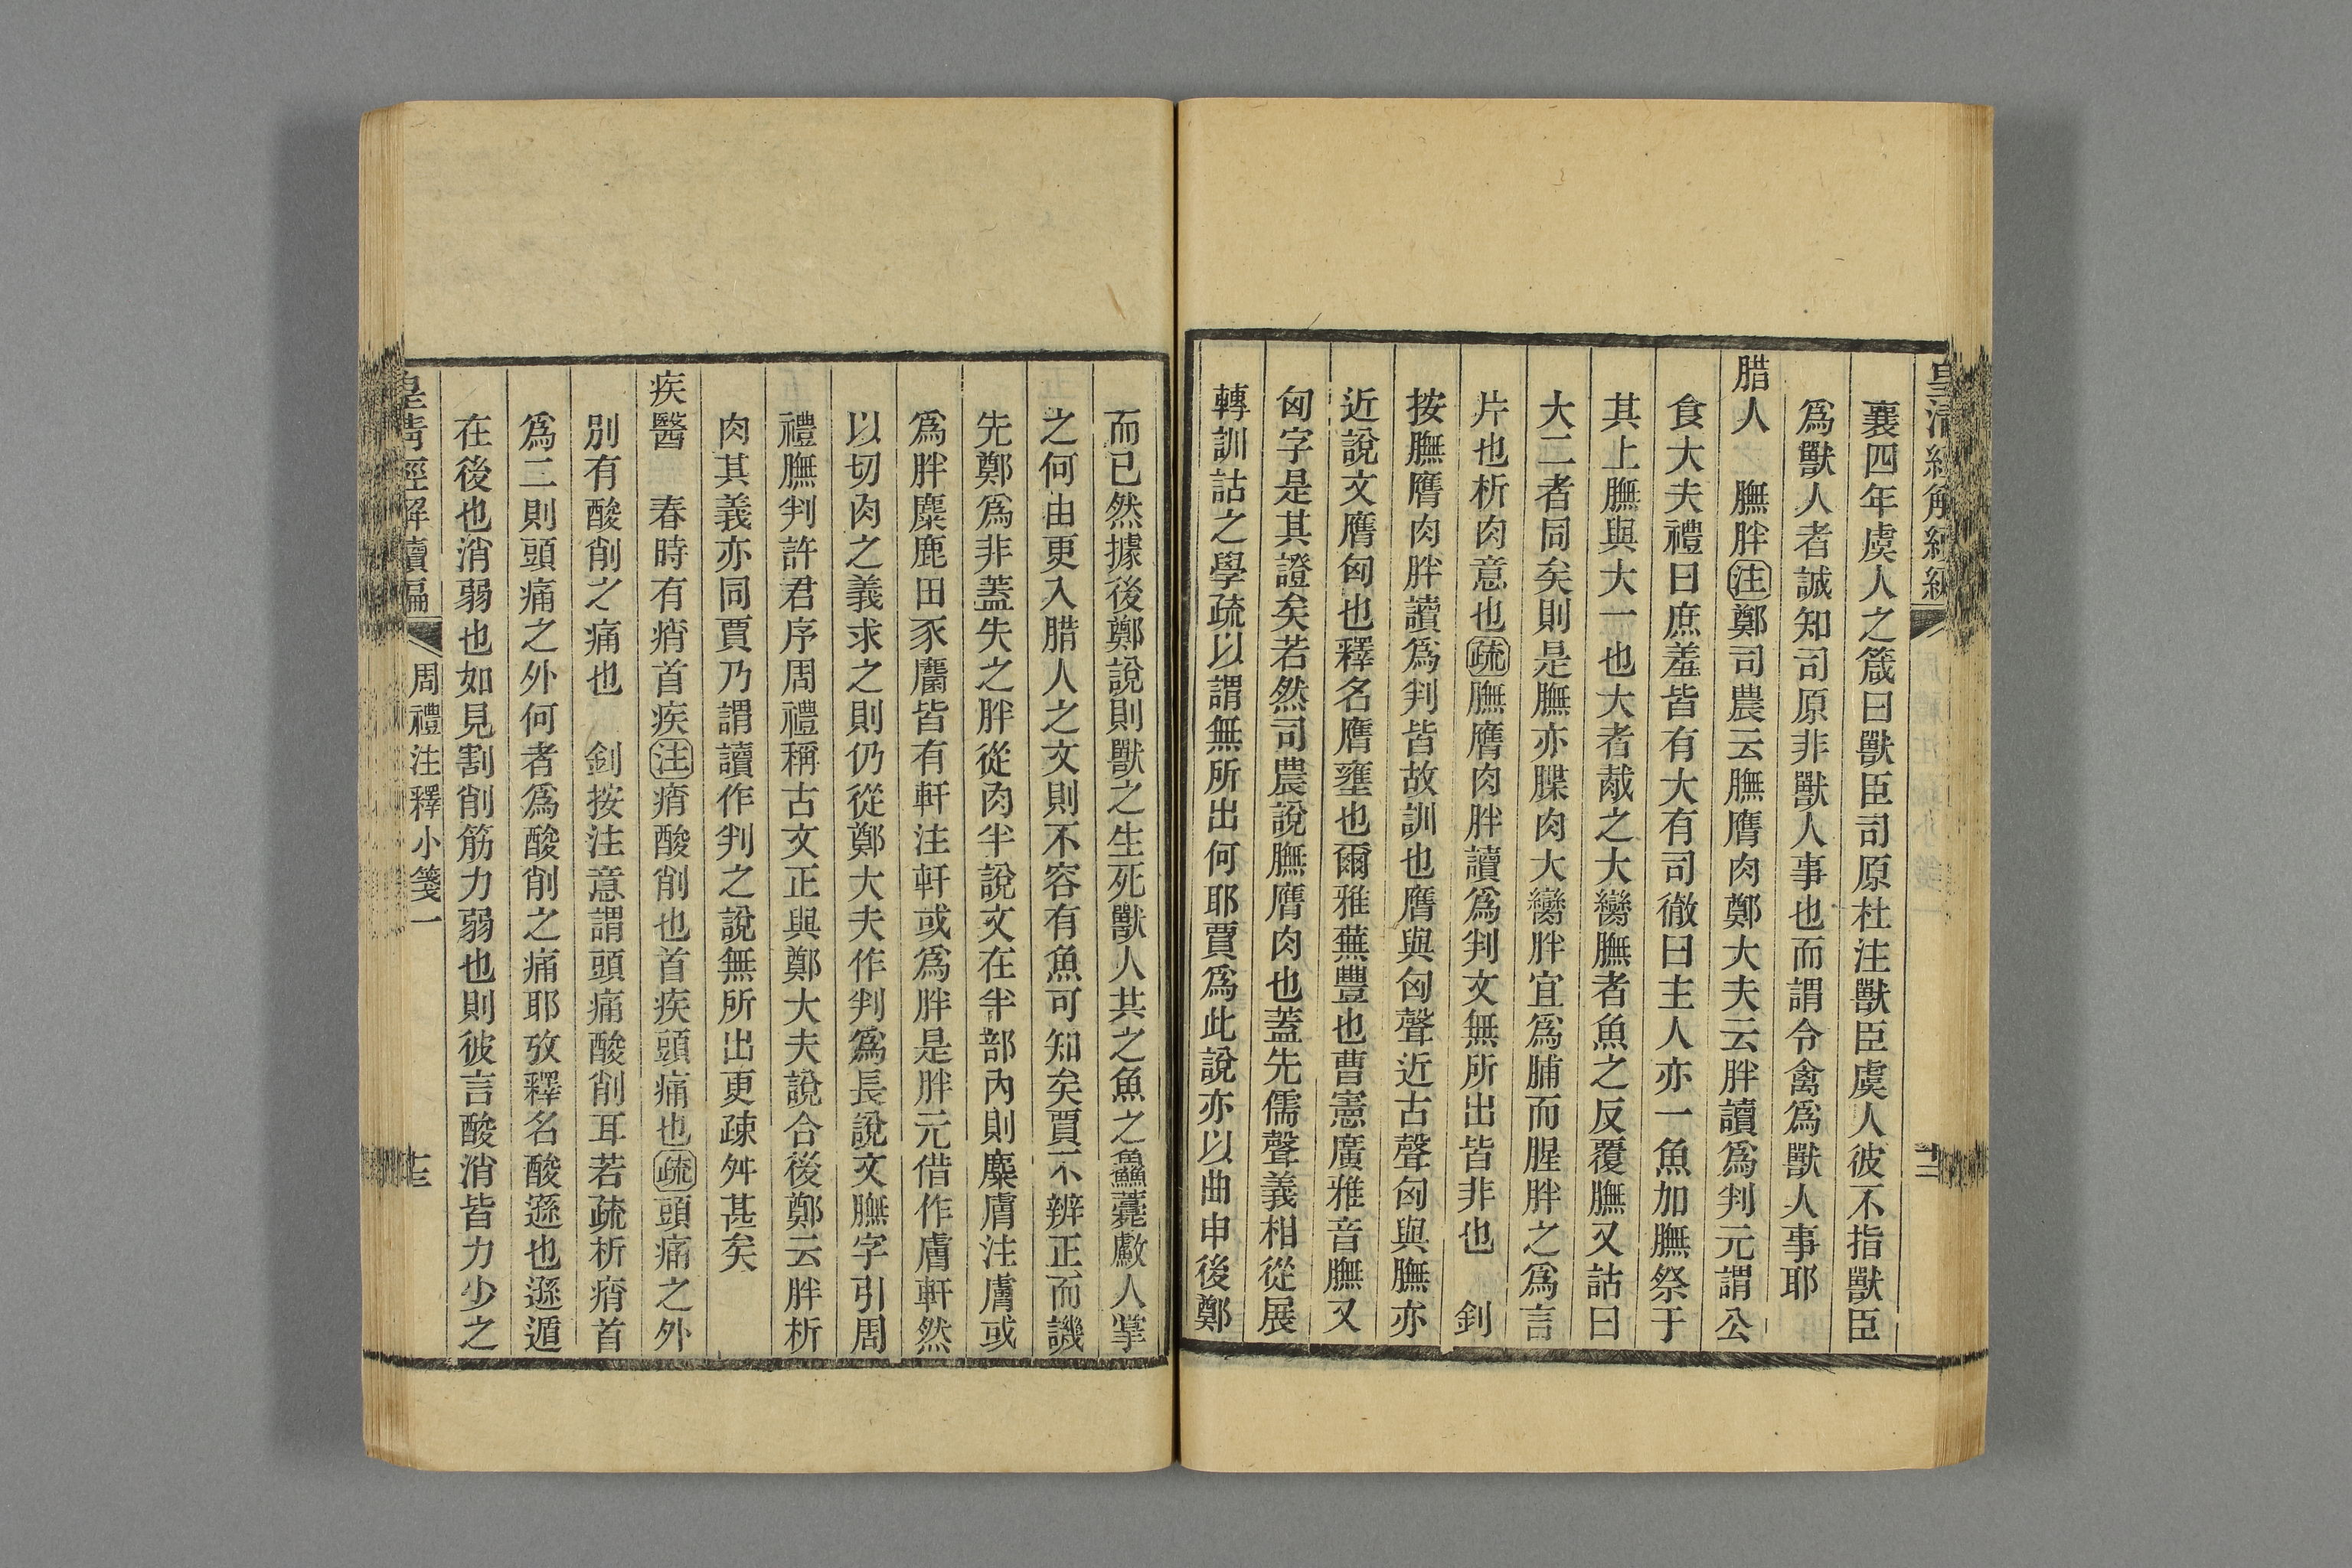 襄四年虞人之箴曰獸臣司原杜注獸臣虞人彼不指獸臣
爲獸人者誠知司原非獸人事也而謂令禽爲獸人事耶
腊人　膴胖注鄭司農云膴膺肉鄭大夫云胖讀爲判元謂公
食大夫禮曰庶羞皆有大有司徹曰主人亦一魚加膴祭于
其上膴與大一也大者胾之大臠膴者魚之反覆膴又詁曰
大二者同矣則是膴亦牒肉大臠胖宜爲脯而腥胖之爲言
片也析肉意也疏膴膺肉胖讀爲判文無所出皆非也　釗
按膴膺肉胖讀爲判皆故訓也膺與匈聲近古聲匈與膴亦
近說文膺匈也釋名膺壅也爾雅蕪豐也曹憲廣雅音膴又
匈字是其證矣若然司農說膴膺肉也蓋先儒聲義相從展
轉訓詁之學疏以謂無所出何耶賈爲此說亦以曲申後鄭
而已然據後鄭說則獸之生死獸人共之魚之鱻薧䱷人掌
之何由更入腊人之文則不容有魚可知矣賈不辨正而譏
先鄭爲非蓋失之胖從肉半說文在半部內則麋膚注膚或
爲胖麋鹿田豕麕皆有軒注軒或爲胖是胖元借作膚軒然
以切肉之義求之則仍從鄭大夫作判爲長說文膴字引周
禮膴判許君序周禮稱古文正與鄭大夫說合後鄭云胖析
肉其義亦同賈乃謂讀作判之說無所出更疎舛甚矣
疾醫　春時有痟首疾注痟酸削也首疾頭痛也疏頭痛之外
別有酸削之痛也　釗按注意謂頭痛酸削耳若疏析痟首
爲二則頭痛之外何者爲酸削之痛耶攷釋名酸遜也遜遁
在後也消弱也如見割削筋力弱也則彼言酸消皆力少之
皇清經解續編
周禮注釋小箋一